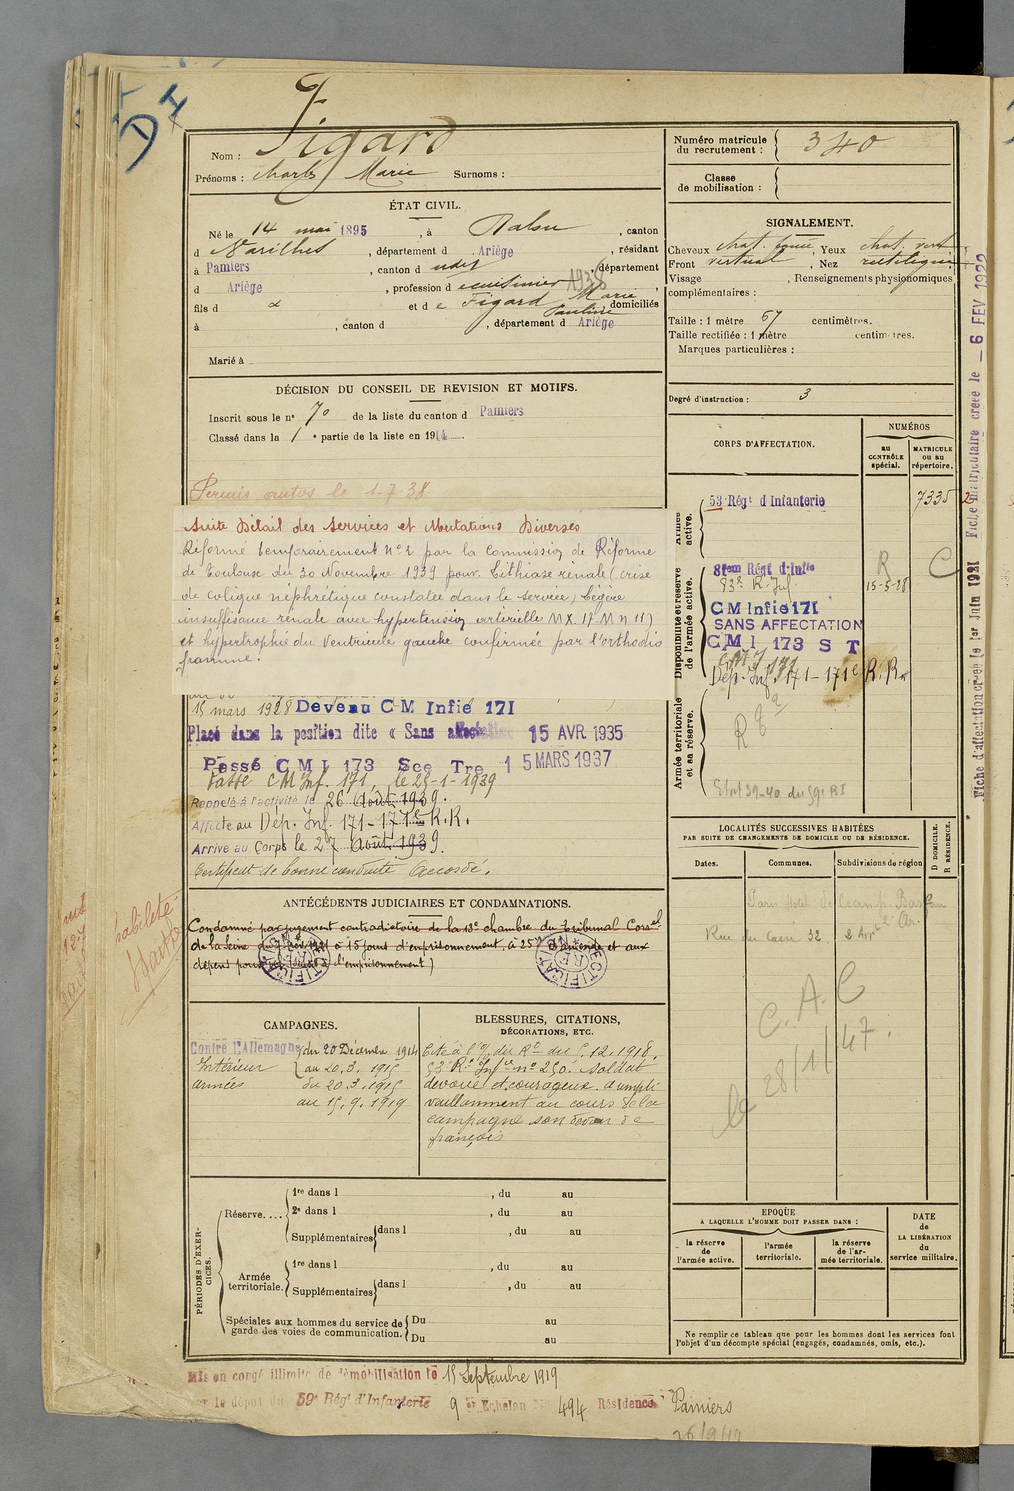 Figard
Nom :
Prénoms : Charles Marie Surnoms :
Numéro matricule du recrutement : 340
Classe de mobilisation :
ÉTAT CIVIL.
Né le 14 mai 1895, à Dalou, canton
d Varilhes, département d Ariège, résidant
à Pamiers, canton d udit, département
d Ariège, profession d e cuisinier 1938,
fils d et d e Figard Marie Pauline, domiciliés
à , canton d , département d Ariège
Marié à
SIGNALEMENT.
Cheveux chat. foncé, Yeux chat. vert
Front vertical, Nez rectiligne
Visage , Renseignements physionomiques
complémentaires :
Taille : 1 mètre 67 centimètres.
Taille rectifiée : 1 mètre centimètres.
Marques particulières :
Degré d'instruction : 3
DÉCISION DU CONSEIL DE REVISION ET MOTIFS.
Inscrit sous le n° 70 de la liste du canton d Pamiers
Classé dans la 1 e partie de la liste en 1914.
Permis autos le 1-7-38
Suite Détail des Services et Mutations Diverses
Réformé temporairement N°2 par la Commission de Réforme
de Toulouse du 30 Novembre 1939 pour Lithiase rénale (crise
de colique néphrétique constatée dans le service) légère
insuffisance rénale avec hypertension artérielle MX 17 Mn 11)
et hypertrophie du Ventricule gauche confirmée par l'orthodia
gramme.
15 mars 1928 Devenu CM Infie 171
Placé dans la position dite « Sans affectation 15 AVR. 1935
Passé CMI 173 Sce Tre 15 MARS 1937
Passé CM Inf. 171, le 25-1-1939
Rappelé à l'activité le 26 Août 1939.
Affecté au Dép. Inf. 171-171e R.R.
Arrivé au Corps le 27 Août 1939.
Certificat de bonne conduite Accordé.
CORPS D'AFFECTATION.
NUMÉROS
au contrôle spécial.
matricule ou au répertoire.
Armée active.
53 Régt d Infanterie 7335
Disponibilité et réserve de l'armée active.
81em Régt d'Infie
R C
53e R. Inf. 15-5-28
CM Infie 171
SANS AFFECTATION
CMI 173 S T
Dép. Inf. 171-171e R.R.
Armée territoriale et sa réserve.
Fiche matriculaire créée le - 6 FEV 1922
Fiche d'affectation créée le 1er Juin 1921
ANTÉCÉDENTS JUDICIAIRES ET CONDAMNATIONS.
Condamné par jugement contradictoire de la 13e chambre du Tribunal Correl
de la Seine du à 15 jours d'emprisonnement, à 25 d'amende et aux
dépens pour d'emprisonnement)
RECTIFICATION
LOCALITÉS SUCCESSIVES HABITÉES
PAR SUITE DE CHANGEMENTS DE DOMICILE OU DE RÉSIDENCE.
Dates. Communes. Subdivisions de région D DOMICILE. R RÉSIDENCE.
Paris Hotel
Rue du Caire 32, 2 Arrt
C.A.C
le 28/1/47.
CAMPAGNES.
Contre l'Allemagne du 20 Décembre 1914
Intérieur au 20.3.1915
armées du 20.3.1915
au 15.9.1919
BLESSURES, CITATIONS,
DÉCORATIONS, ETC.
Cité à l'o/ du Rt du 5.12.1918.
53e Rt Infie n° 250. Soldat
dévoué et courageux. a rempli
vaillamment au cours de la
campagne son devoir de
français
PÉRIODES D'EXERCICES.
Réserve....
1re dans l , du au
2e dans l , du au
Supplémentaires dans l , du au
Armée territoriale.
1re dans l , du au
Supplémentaires dans l , du au
Spéciales aux hommes du service de garde des voies de communication.
Du au
Du au
EPOQUE
A LAQUELLE L'HOMME DOIT PASSER DANS :
la réserve de l'armée active.
l'armée territoriale.
la réserve de l'armée territoriale.
DATE de LA LIBÉRATION du service militaire.
Ne remplir ce tableau que pour les hommes dont les services font
l'objet d'un décompte spécial (engagés, condamnés, omis, etc.).
Mis en congé illimité de démobilisation le 15 Septembre 1919
par le dépôt du 59e Régt d'Infanterie 9 er Echelon N° 494 Résidence Pamiers
26/9/19